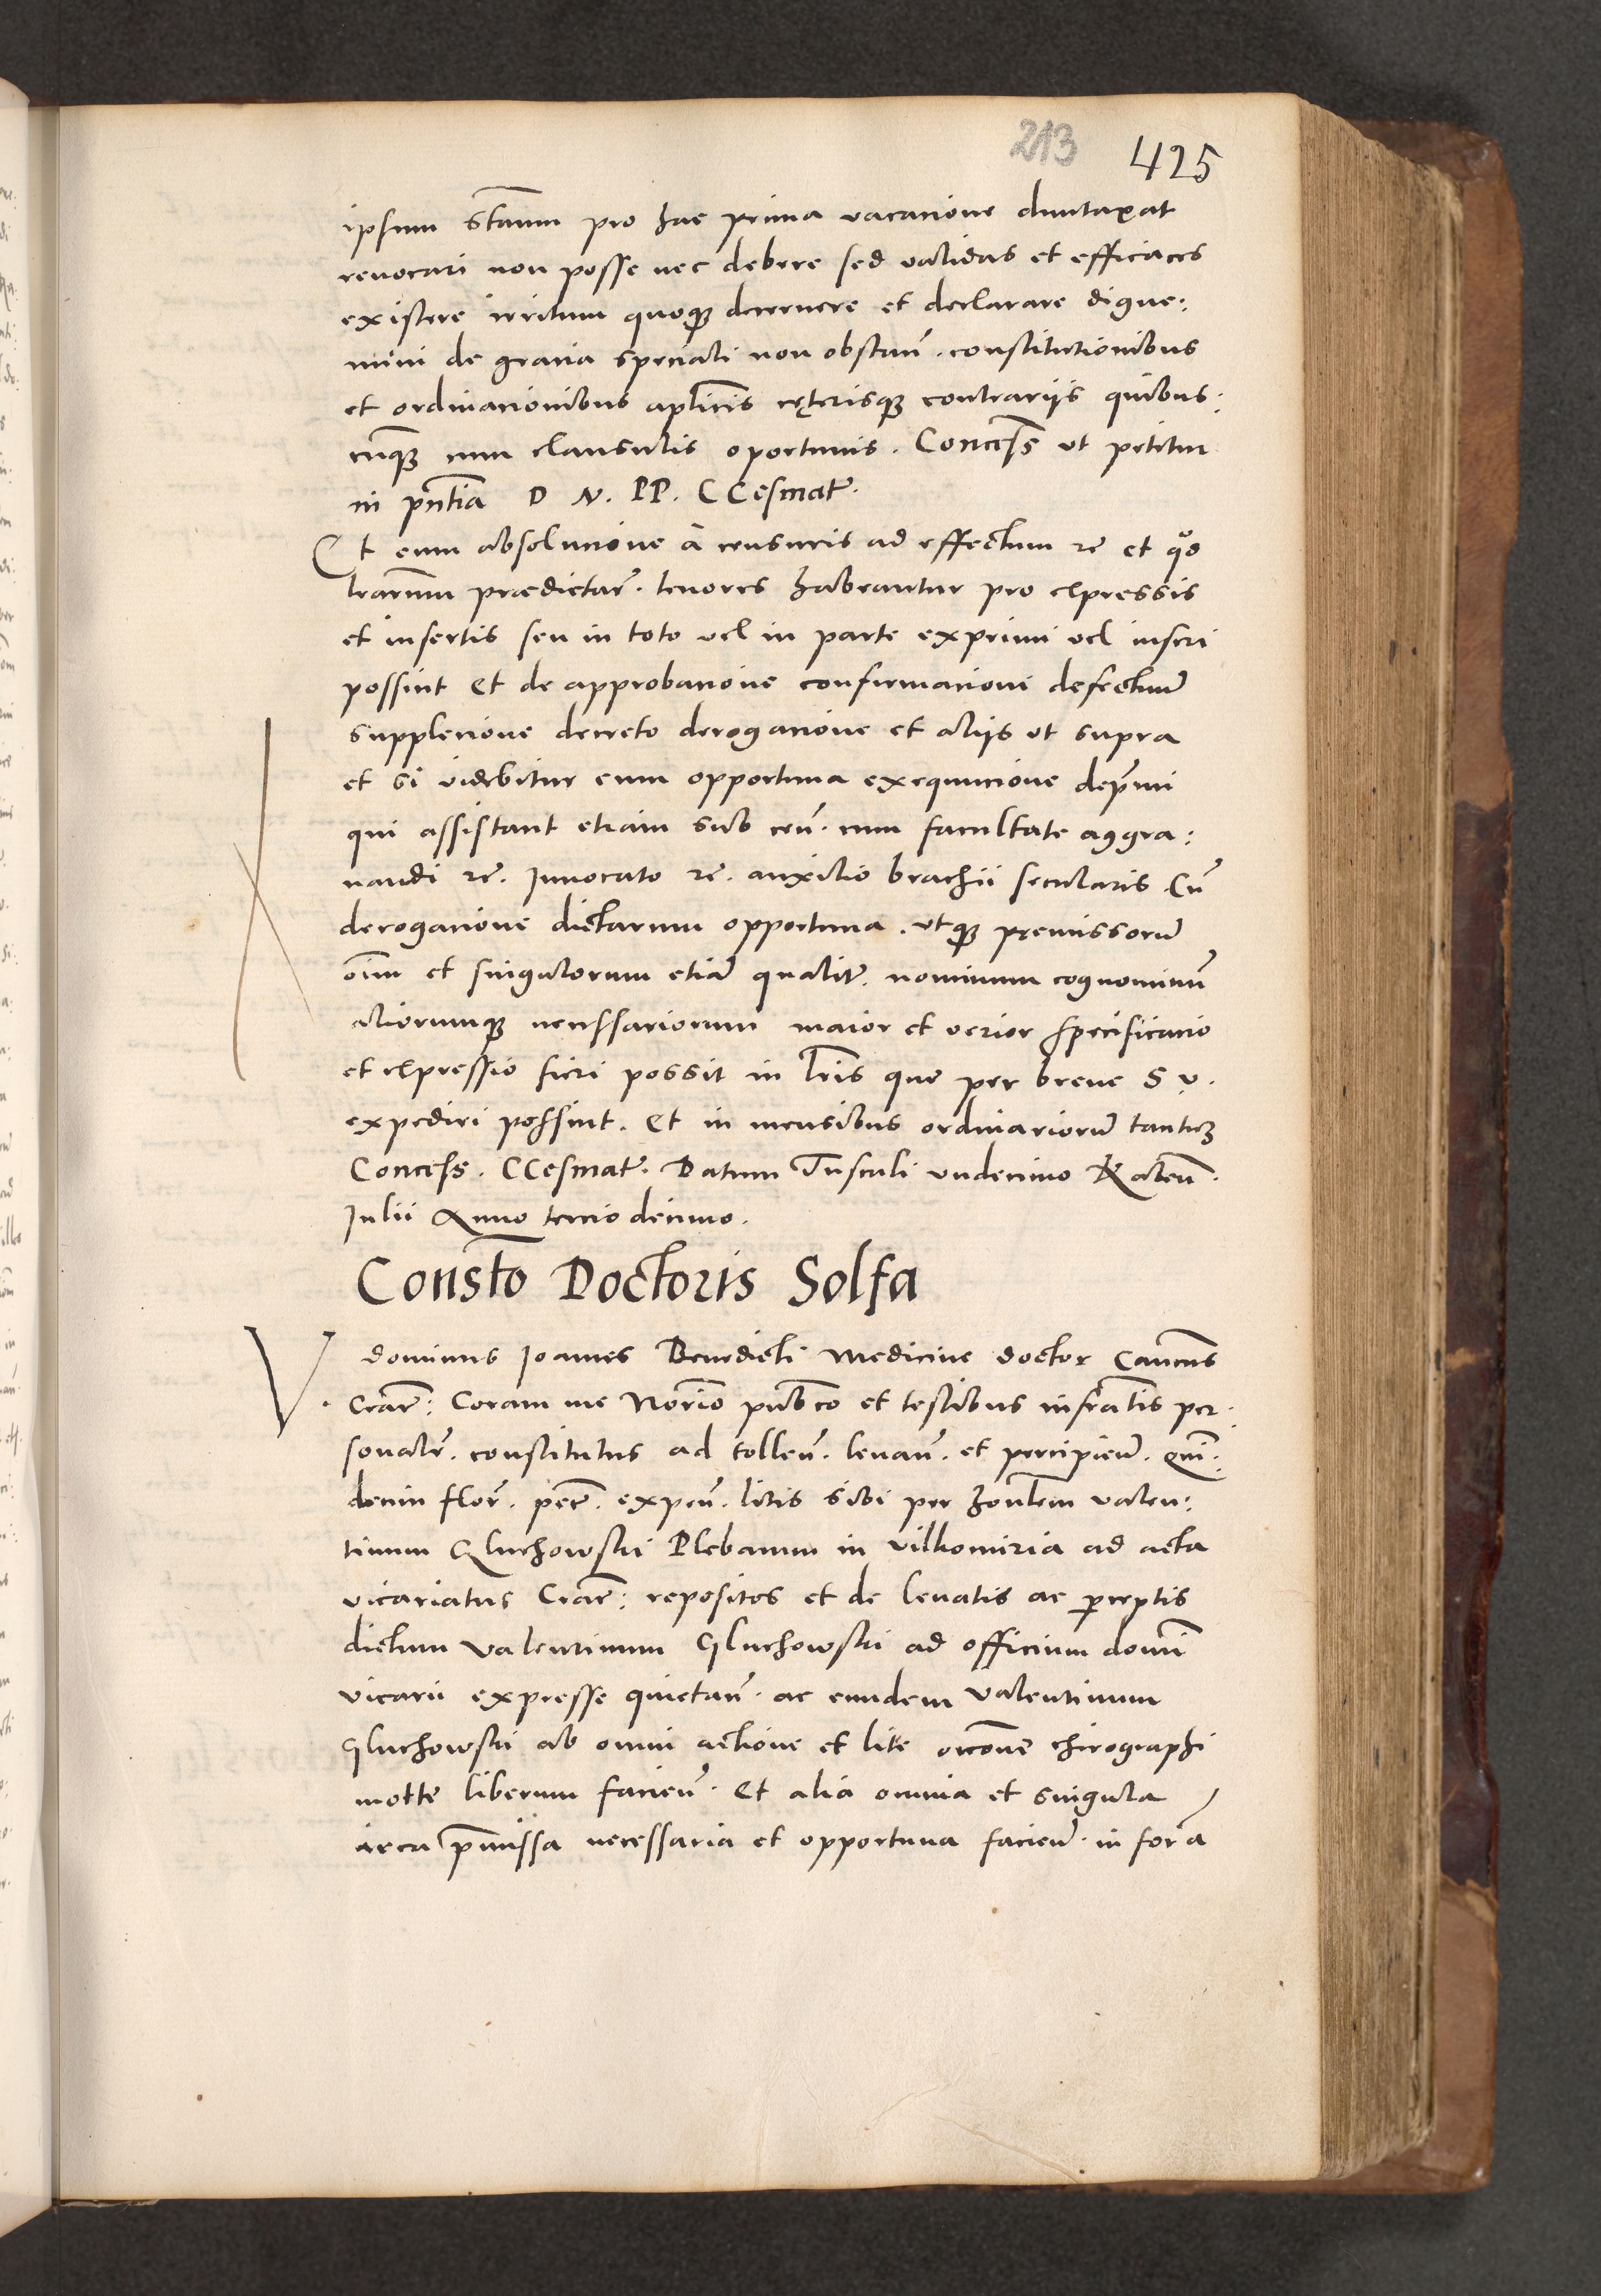 213 425
ipsum stãum pro hac prima vacatione duntaxat
revocari non posse nec debere sed validas et efficaces
existere irritum quoq₃ decernere et declarare digne:
mini de gratia speciali non obstan̄. constitutionibus
et ordinationibus aplicis cęterisq₃ contrariis quibus:
cunq₃ cum clausulis oportunis. Concess̄ ut petitur
in pñtia D N. PP. CCesmatr̄.
Et cum absolucione a censuris ad effectum rē et qđ
lrarum prædictar̄. tenores habeantur pro expressis
et insertis seu in toto vel in parte exprimi vel inseri
possint Et de approbatione confirmationi defectuum̄
suppletione decreto derogatione et aliis ut supra
et si videbitur cum opportuna exequutione dep̄mi
qui assistant etiam sub cen̄. cum facultate aggra:
vandi rē. Invocato rē. auxilio brachii secularis Cū
derogatione dictarum opportuna. utq₃ pręmissorū
oīm et singulorum etiā qualit̄. nominum cognominū
aliorumq₃ necessariorum maior et verior specificatio
et expressio fieri possit in lris que per breve S v.
expediri possint. Et in mensibus ordinariorū tantū
Concess. CCesmatr̄. Datum Tusculi undecimo Kaleñ.
Julii Anno tercio decimo.
Constō Doctoris Solfa
V. dominus Joannes Benedicti Medicine doctor Cancus
Crar̄: Coram me Norio pub͞co et testibus infratis per:
sonalr̄. constitutus ad tollen̄. levan̄. et percipien̄. quī:
decim flor̄. pec̄. expen̄. litis sibi per honlem valen:
tinum Gluchowski Plebanum in Vilkomiria ad acta
vicariatus Crar̄: repositos et de levatis ac perceptis
dictum Valentinum Gluchowski ad officium domī
vicarii expresse quietan̄. ac eundem Valentinum
Gluchowski ab omni actione et lite occone chirographi
motte liberum facien̄. Et alia omnia et singula
circa p̄missa necessaria et opportuna facien̄. in forā